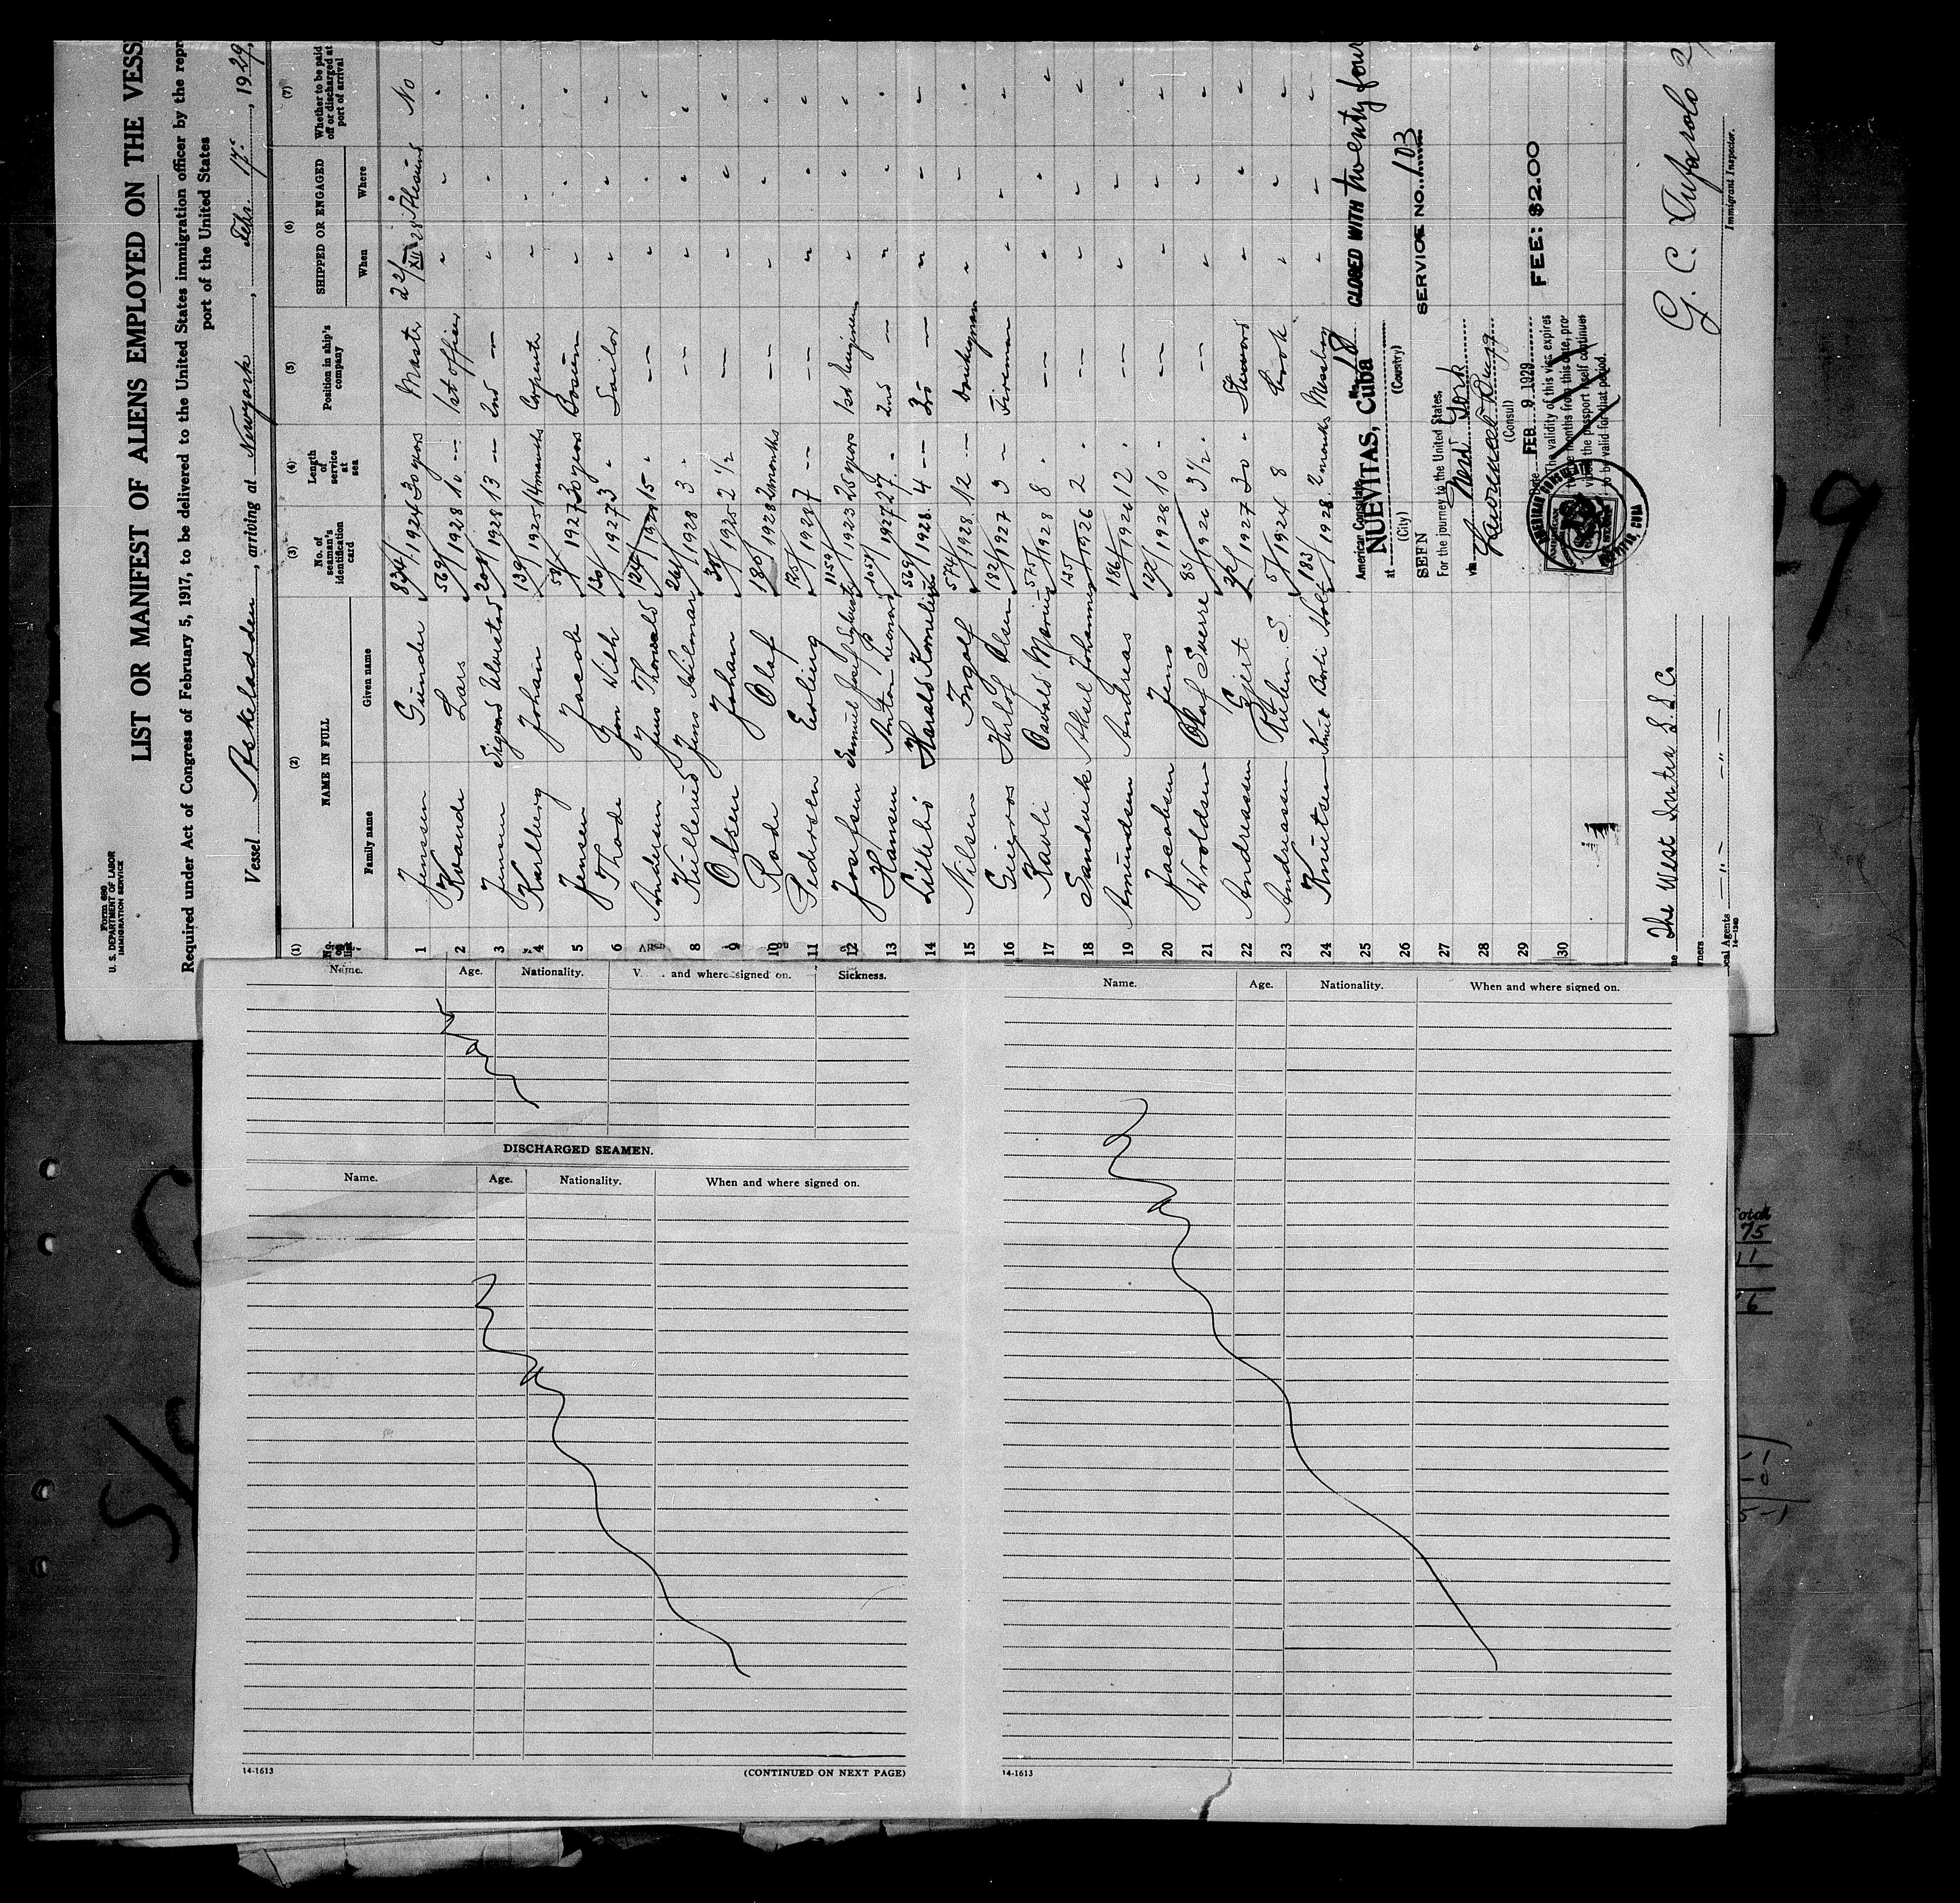 Form 680
U. S. DEPARTMENT OF LABOR
IMMIGRATION SERVICE
LIST OR MANIFEST OF ALIENS EMPLOYED ON THE VESS
Required under Act of Congress of February 5, 1917, to be delivered to the United States immigration officer by the repr
port of the United States
Vessel Askeladden, arriving at Newyork, Febr. 17, 1929,
(1) (2) (3) (4) (5) (6) (7)
No. on list
NAME IN FULL
Family name
Given name
No. of seaman's identification card
Length of service at sea
Position in ship's company
SHIPPED OR ENGAGED
When
Where
Whether to be paid off or discharged at port of arrival
1 Jenssen Gunder 834/1924 30 years Master 22/XII 28 No
2 Kvande Lars 569/1928 10 — 1st officer
3 Jensen Sigurd 208/1928 13 — 2nd —
4 Karlberg Johan 139/1925 14 months
5 Jensen Jacob 1927 30 years
6 Thode Jon 130/1927 3 Sailor
7 Andersen Jens Thorvald 124/1928 15 —
8 Kullerud Jens Hilmar 261/1928 3 —
9 Olsen Johan 1925 2 1/2 —
10 Rode Olaf 180/1928 2 months —
11 Pedersen Erling 125/1928 7 — —
12 Josefsen Samuel 1159/1923 28 years 1st Engineer
13 Hansen Anton 1057/1927 27 2nd —
14 Lillebö Harald Kornelius 569/1928 4 — 3rd —
15 Nilsen Ingolf 574/1928 12 — Donkeyman
16 Olsen 182/1927 3 — Fireman
17 Ravli Osvald Marius 575/1928 8 —
18 Sandvik Aksel Johannes 135/1926 2 —
19 Amundsen Andreas 186/1926 12 —
20 Jacobsen Jens 122/1928 10 —
21 Wroldsen Olaf Sverre 85/1926 3 1/2 —
22 Andreassen Gjert 22/1927 30 Steward
23 Andreassen Ruben S. 5/1924 8 Cook
24 Knutsen Knut 183/1928 2 months Messboy
25
26
27
28
29
30
American Consulate No. 18
at NUEVITAS, Cuba
(City) (Country)
SEEN
For the journey to the United States,
via New York
(Consul)
Date FEB 9 1929
The validity of this visa expires
twelve months from this date, pro-
vided the passport itself continues
to be valid for that period.
AMERICAN CONSULATE
CLOSED WITH twenty four
SERVICE NO. 103
FEE: $2.00
The West India S. S. Co.
Local Agents — " —
14-1240
G. C.
Immigrant Inspector.
Name. Age. Nationality. and where signed on. Sickness.
DISCHARGED SEAMEN.
Name. Age. Nationality. When and where signed on.
14-1613 (CONTINUED ON NEXT PAGE)
Name. Age. Nationality. When and where signed on.
14-1613
Total
75
11